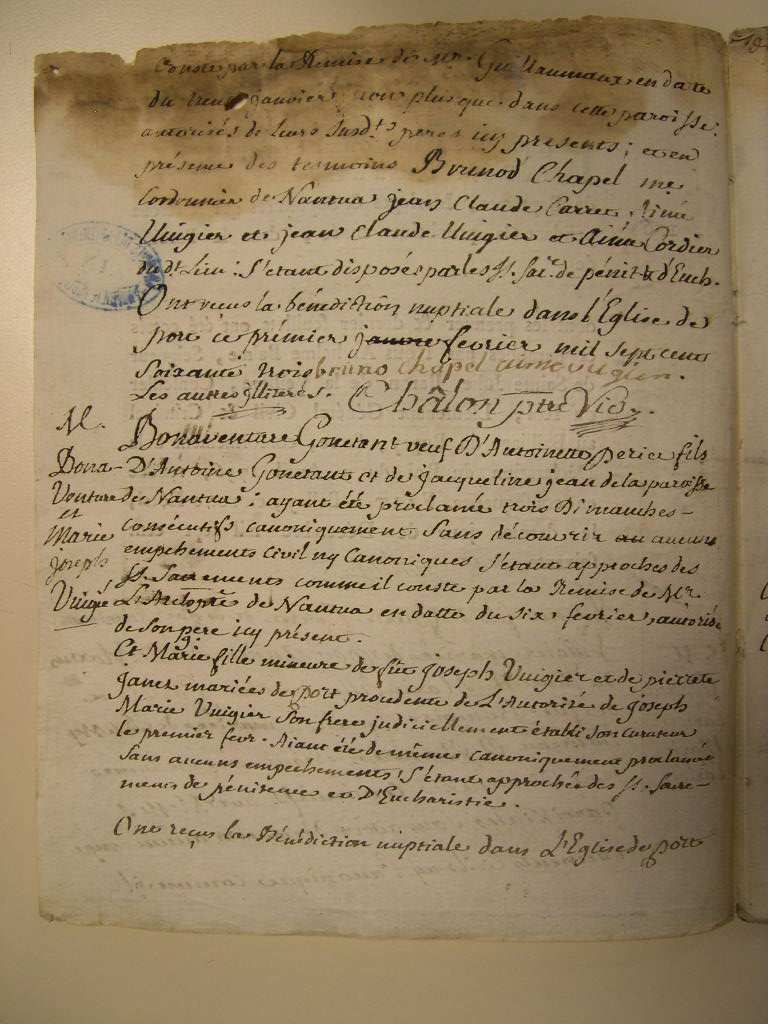 Conste par la Remise de Mr. Guillaumaux en date
du janvier non plus que dans cette paroisse:
autorisés de leurs susd.ts peres icy presents; et en
présence des tesmoins Brunod Chapel me
Cordonnier de Nantua jean Claude Carret, Aimé
Vuigier et jean Claude Vuigier et Aimé Cordier
du dt. Lieu: S'etant disposés par les SS. Sai. de pénit & d'Euch.
Ont reçus la bénédiction nuptiale dans l'Eglise de
port ce prémier janvie fevrier mil sept cent
soixante trois bruno chapel aime vugier.
Les autres illiterés. Châlon ptre Vic.
M.
Bona-
Venture
et
Marie
joseph
Vuigié
Bonaventure Gonetant veuf D'Antoinette perier fils
D'Antoine Gonetant et de jacqueline jean de la paroisse
de Nantua; ayant été proclamé trois Dimanches-
consécutifs canoniquement Sans décourir au aucuns
empechements Civil ny Canoniques S'etant approches des
SS. Sacrements comme il conste par la Remise de Mr.
de Nantua en datte du six fevrier, autorisé
de son pere icy présent.
Et Marie fille mineure de fût joseph Vuigier et de pierrete
janez mariées de port procedente de L'Autorité de joseph
Marie Vuigier son frere judiciellement établi son curateur
le premier fevr. Aiant été de même canoniquement proclamée
Sans aucuns empechements S'etant approchée des SS. Sacre-
ments de pénitence et D'Eucharistie.
Ont reçus la Bénédiction nuptiale dans L'Eglise de port